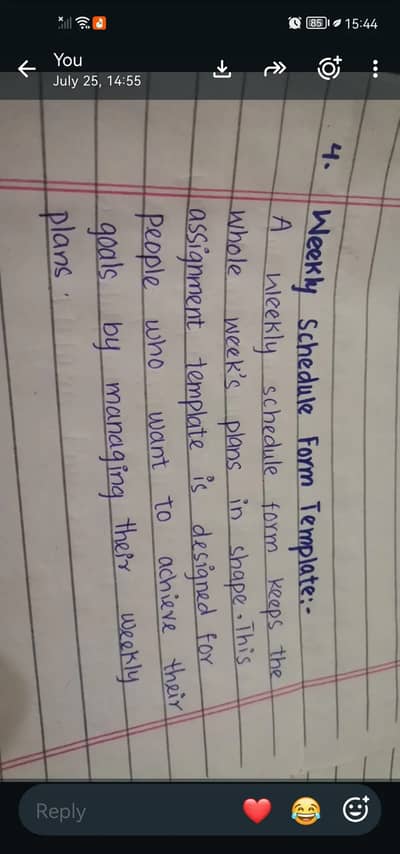 85
15:44
You
July 25, 14:55
4. Weekly Schedule Form Template:-
A weekly schedule form keeps the
whole week's plans in shape. This
assignment template is designed for
people who want to achieve their
goals by managing their weekly
plans.
Reply